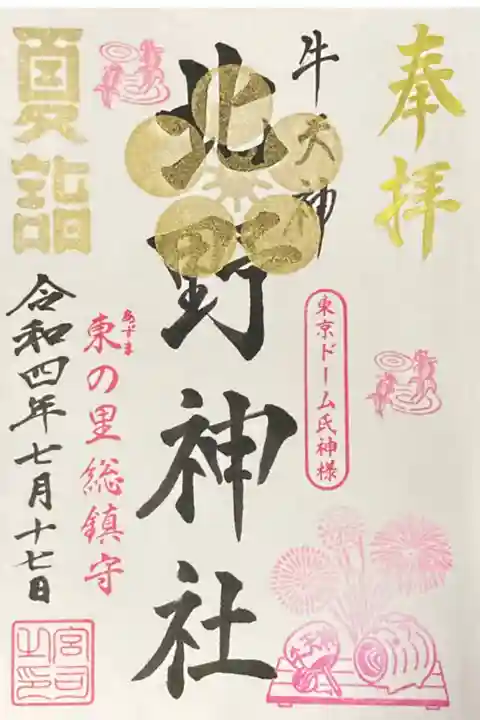 奉拝
牛天神
東京ドーム氏神様
北野神社
夏詣
あずま
東の里総鎮守
令和四年七月十七日
宮司之印